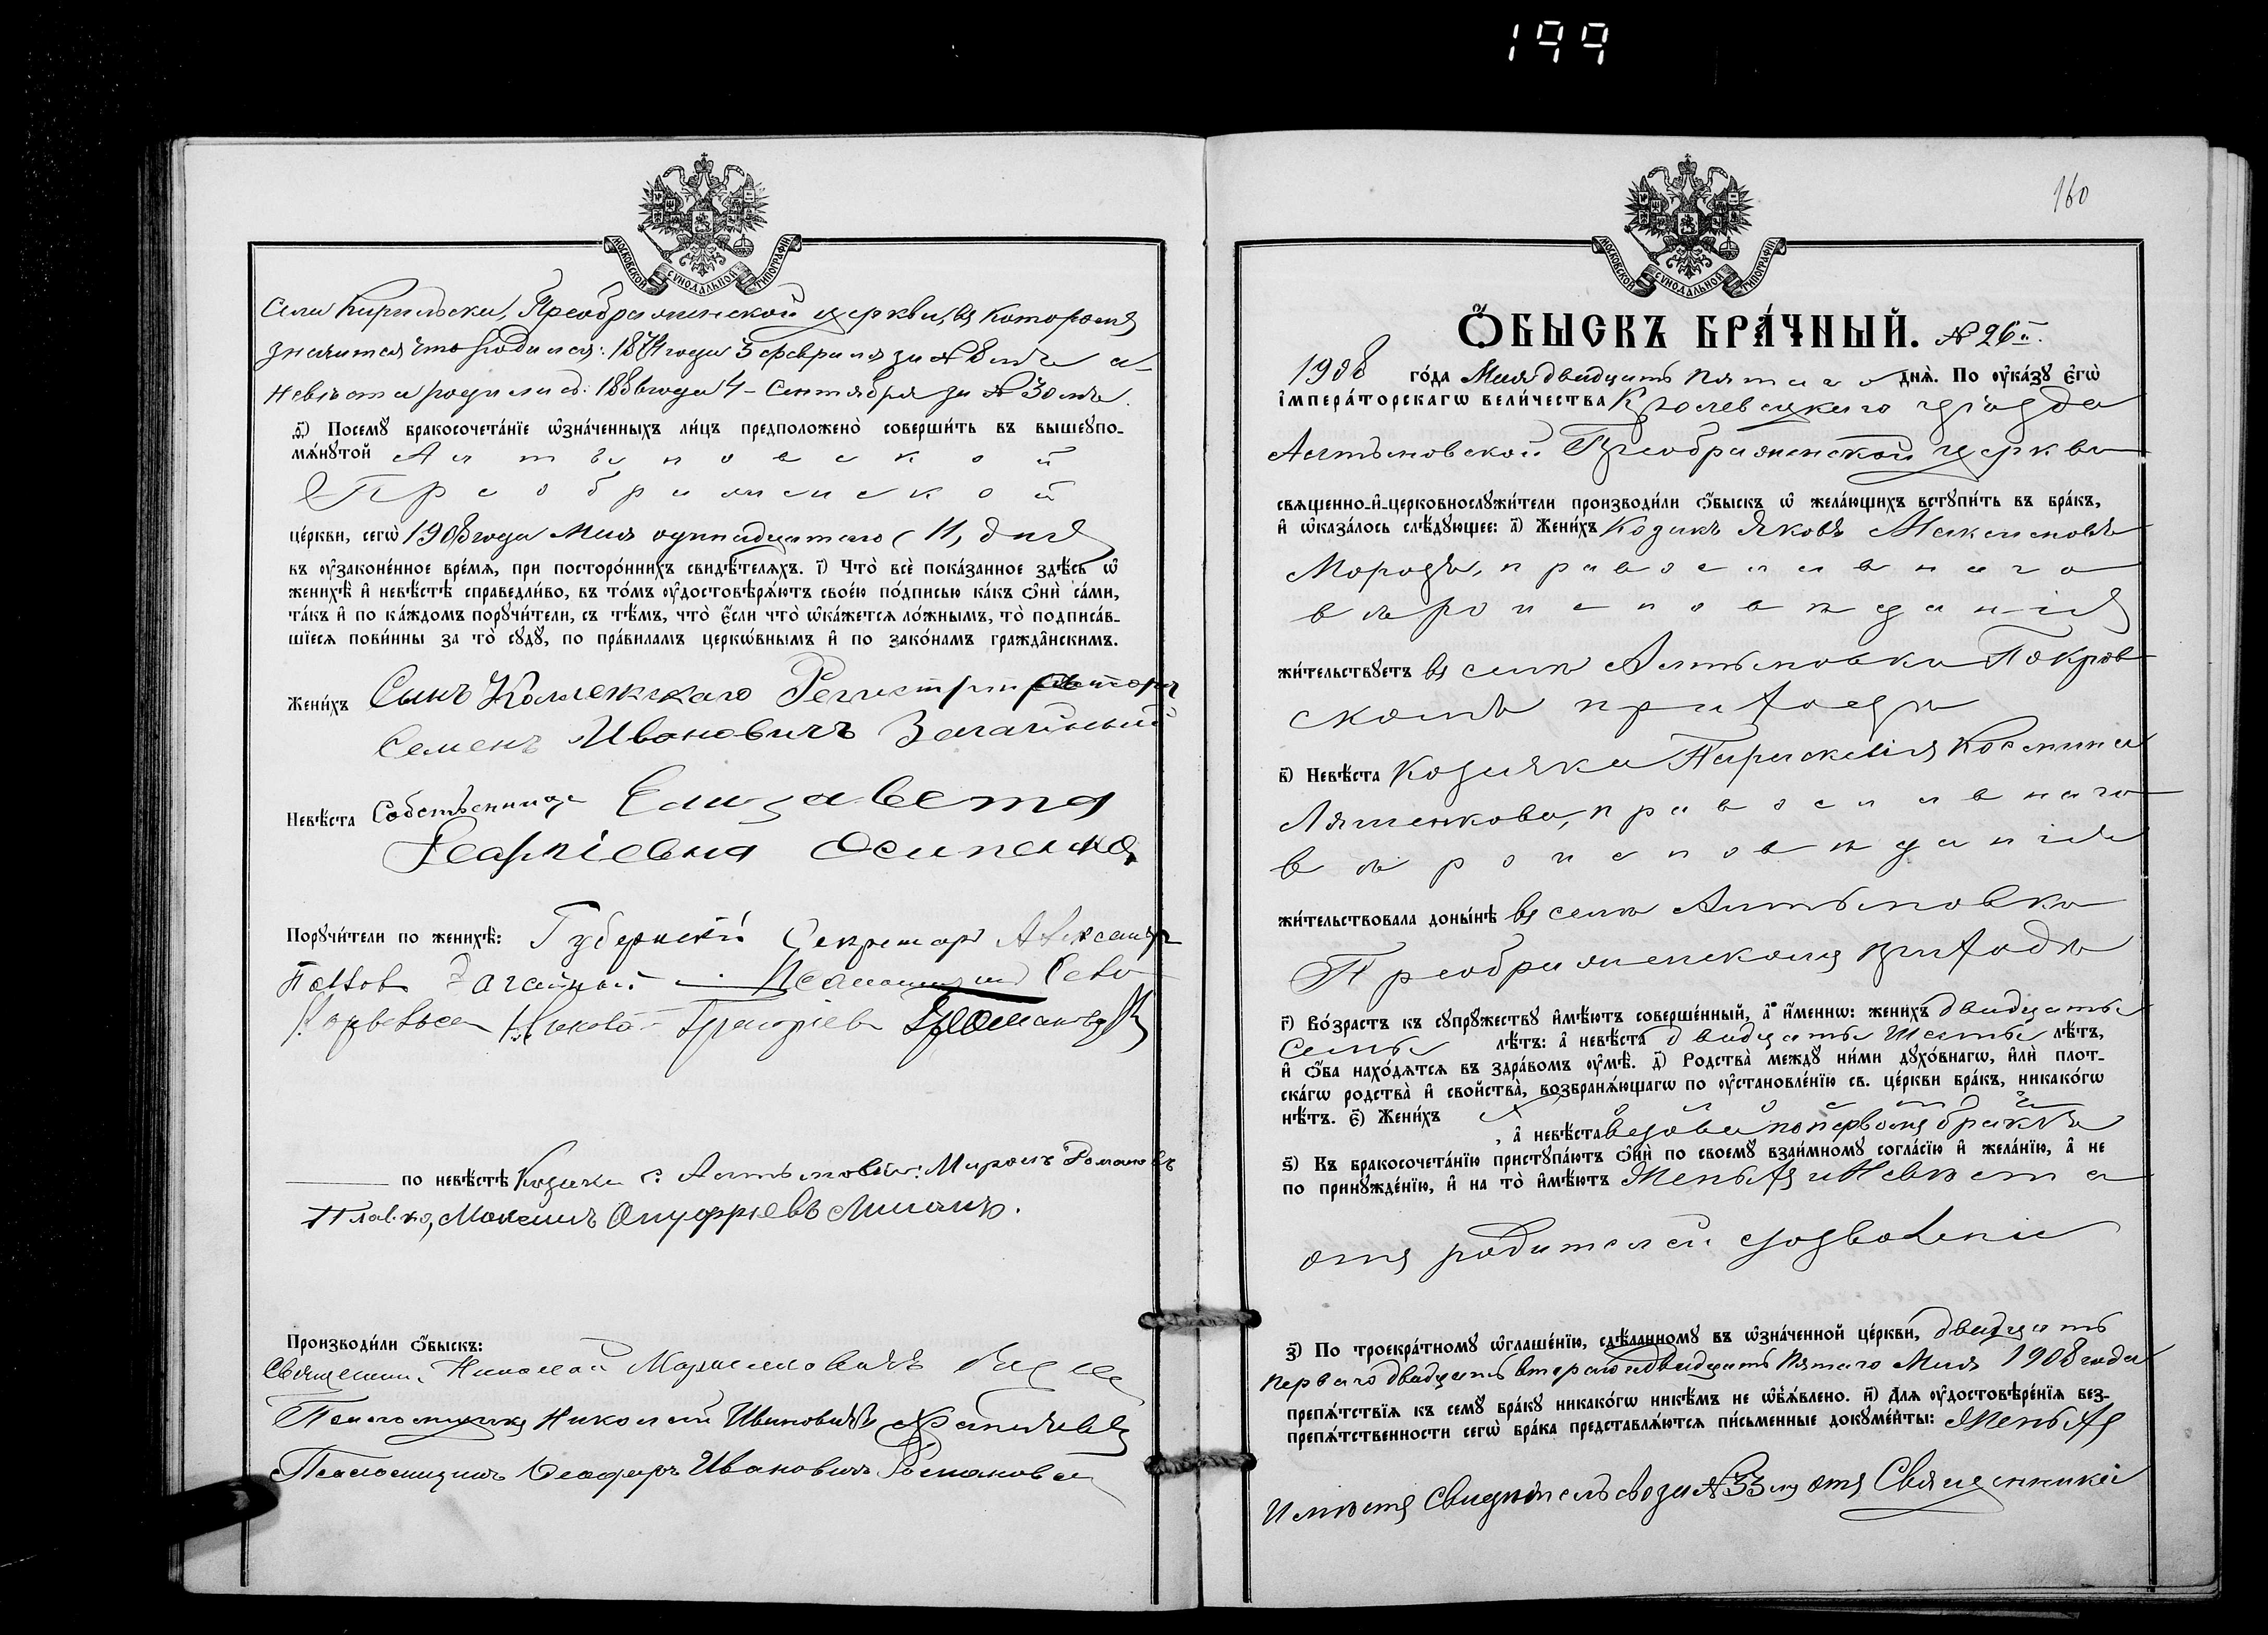 199
МОСКОВСКОЙ СѴНОДАЛЬНОЙ ТИПОГРАФІИ
села Кирильска, Преображенской церкви, въ которомъ
значится что родился: 1874 года 3 февраля за № 8 мъ а
Невѣста родилась: 1886 года 4 Сентября за № 30 мъ.
ѳ҃) Посемꙋ бракосочета́нїе ѡ҆зна́ченныхъ ли́цъ предположено̀ соверши́ть въ вышеꙋпо-
мѧ́нꙋтой Алтыновской
Преображенской
це́ркви, сегѡ̀ 1908 года Мая одинадцатаго (11) дня
въ ᲂу҆законе́нное вре́мѧ, при посторо́ннихъ свидѣ́телѧхъ. і҃) Что̀ всѐ пока́занное здѣ́сь ѡ҆
женихѣ̀ и҆ невѣ́стѣ справедли́во, въ то́мъ ᲂу҆достовѣрѧ́ютъ своє́ю по́дписью ка́къ ѻ҆нѝ са́ми,
та́къ и҆ по ка́ждомъ порꙋчи́тели, съ тѣ́мъ, что̀ є҆́сли что̀ ѡ҆ка́жетсѧ ло́жнымъ, то̀ подписа́в-
шїесѧ пови́нны за то̀ сꙋдꙋ̀, по пра́виламъ церкѡ́внымъ и҆ по зако́намъ гражда̂нскимъ.
Жени́хъ Сынъ Коллежскаго Регистратора
Семенъ Ивановичъ Загайный
Невѣ́ста Собственница Елизавета
Георгіевна Осипенко
Порꙋчи́тели по женихѣ̀: Губернскій Секретарь Александръ
Павловъ Загайный
Григоріевъ
по невѣ́стѣ Козаки с. Алтыновки: Миронъ Романовъ
Павлко, Моисей Онуфріевъ
Производи́ли ѻ҆́быскъ:
Священникъ Николай
Псаломщикъ Николай Ивановичъ
Псаломщикъ Ивановичъ Романовъ
160
МОСКОВСКОЙ СѴНОДАЛЬНОЙ ТИПОГРАФІИ
Ѻ҆́БЫСКЪ БРА́ЧНЫЙ. № 26й.
1908 го́да Мая двадцать пятаго днѧ̀. По ᲂу҆ка́зꙋ є҆гѡ̀
і҆мпера́торскагѡ вели́чества Кролевецкаго уѣзда
Алтыновской Преображенской церкви
свѧщенно-и҆-церковнослꙋжи́тели производи́ли ѻ҆́быскъ ѡ҆ жела́ющихъ встꙋпи́ть въ бра́къ,
и҆ ѡ҆каза́лось слѣ́дꙋющее: а҃) Жени́хъ Козакъ Яковъ Максимовъ
Морозъ, православнаго
вѣроисповѣданія
жи́тельствꙋетъ въ селѣ Алтыновкѣ Покров
скомъ приходѣ
в҃) Невѣ́ста Козачка Параскевія Космина
Ляшенкова, православнаго
вѣроисповѣданія
жи́тельствовала доны́нѣ въ селѣ Алтыновкѣ
Преображенскомъ приходѣ
г҃) Во́зрастъ къ сꙋпрꙋ́жествꙋ и҆мѣ́ютъ соверше́нный, а҆ и҆́меннѡ: жени́хъ двадцать
семь лѣ́тъ: а҆ невѣ́ста двадцать шесть лѣ́тъ,
и҆ ѻ҆́ба нахо́дѧтсѧ въ здра́вомъ ᲂу҆мѣ̀. д҃) Родства̀ междꙋ̀ ни́ми дꙋхо́внагѡ, и҆лѝ плот-
ска́гѡ родства̀ и҆ свойства̀, возбранѧ́ющагѡ по ᲂу҆становле́нїю св. це́ркви бра́къ, никако́гѡ
нѣ́тъ. є҃) Жени́хъ
, а҆ невѣ́ста вдова по первомъ бракѣ
ѕ҃) Къ бракосочета́нїю пристꙋпа́ютъ ѻ҆нѝ по своемꙋ̀ взаи́мномꙋ согла́сїю и҆ жела́нїю, а҆ не
по принꙋжде́нїю, и҆ на то̀ и҆мѣ́ютъ Женихъ и Невѣста
отъ родителей дозволеніе
з҃) По троекра́тномꙋ ѡ҆глаше́нїю, сдѣ́ланномꙋ въ ѡ҆зна́ченной це́ркви, двадцать
перваго двадцать втораго и двадцать пятаго Мая 1908 года
препѧ́тствїѧ къ семꙋ̀ бра́кꙋ никако́гѡ никѣ́мъ не ѡ҆б̾ѧ́влено. и҃) Длѧ ᲂу҆достовѣре́нїѧ без-
препѧ́тственности сегѡ̀ бра́ка представлѧ́ютсѧ пи́сьменные докꙋме́нты: Женихъ
имѣетъ свидѣтельство за № 33 мъ отъ Священника